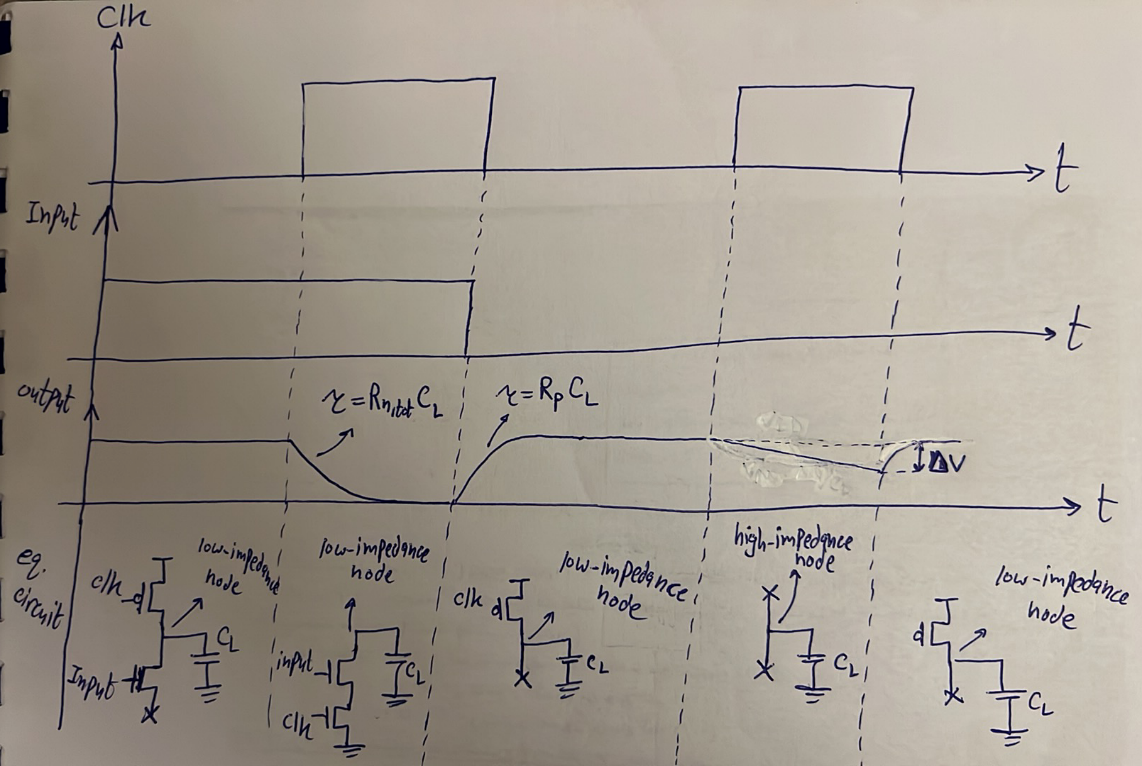 Clk
t
Input
t
output
τ = Rn,tot CL
τ = Rp CL
ΔV
t
eq.
circuit
low-impedance
node
clk
CL
Input
low-impedance
node
input
CL
clk
low-impedance
node
clk
CL
high-impedance
node
CL
low-impedance
node
CL